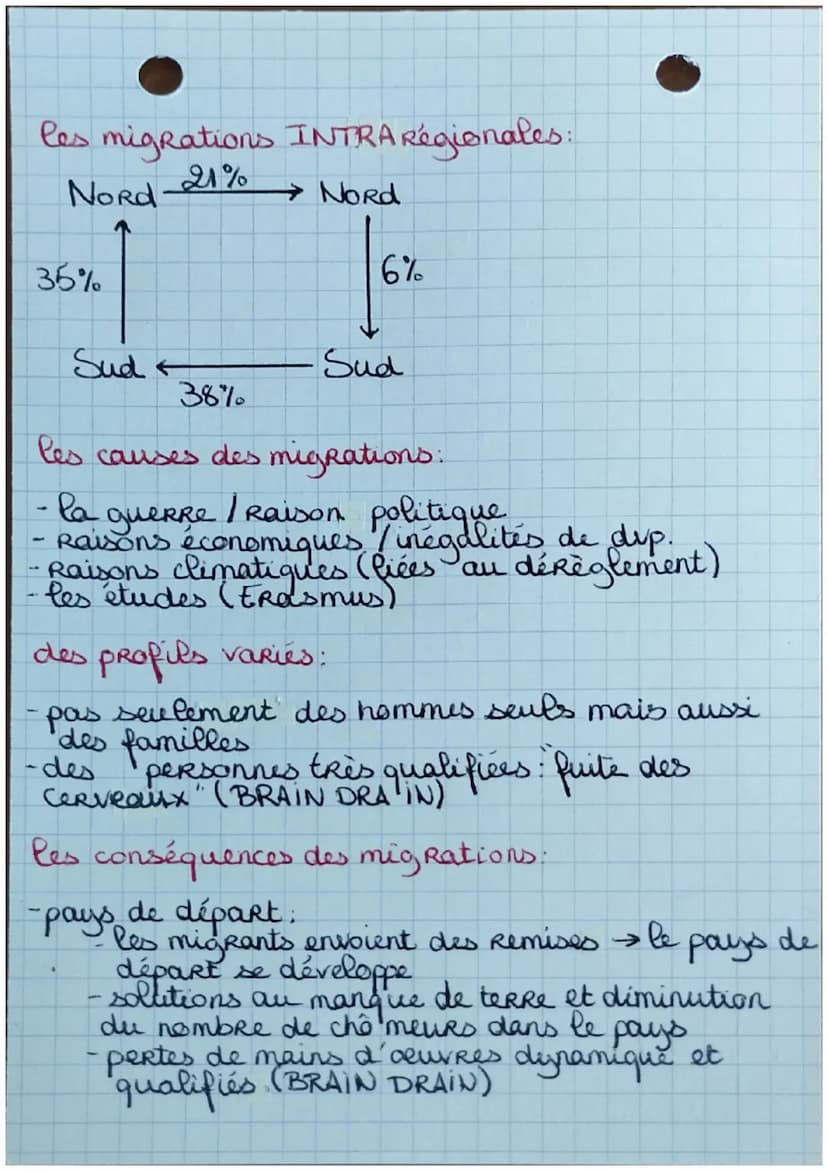 les migrations INTRArégionales:
Nord 21% → Nord
35% ↑ ↓ 6%
Sud ← Sud
38%
les causes des migrations:
- la guerre / raison politique
- raisons économiques / inégalités de dvp.
- raisons climatiques (liées au dérèglement)
- les études (Erasmus)
des profils variés:
- pas seulement des hommes seuls mais aussi
des familles
- des personnes très qualifiées: "fuite des
cerveaux" (BRAIN DRAIN)
les conséquences des migrations:
- pays de départ:
- les migrants envoient des remises → le pays de
départ se développe
- solutions au manque de terre et diminution
du nombre de chômeurs dans le pays
- pertes de mains d'oeuvres dynamique et
qualifiés. (BRAIN DRAIN)